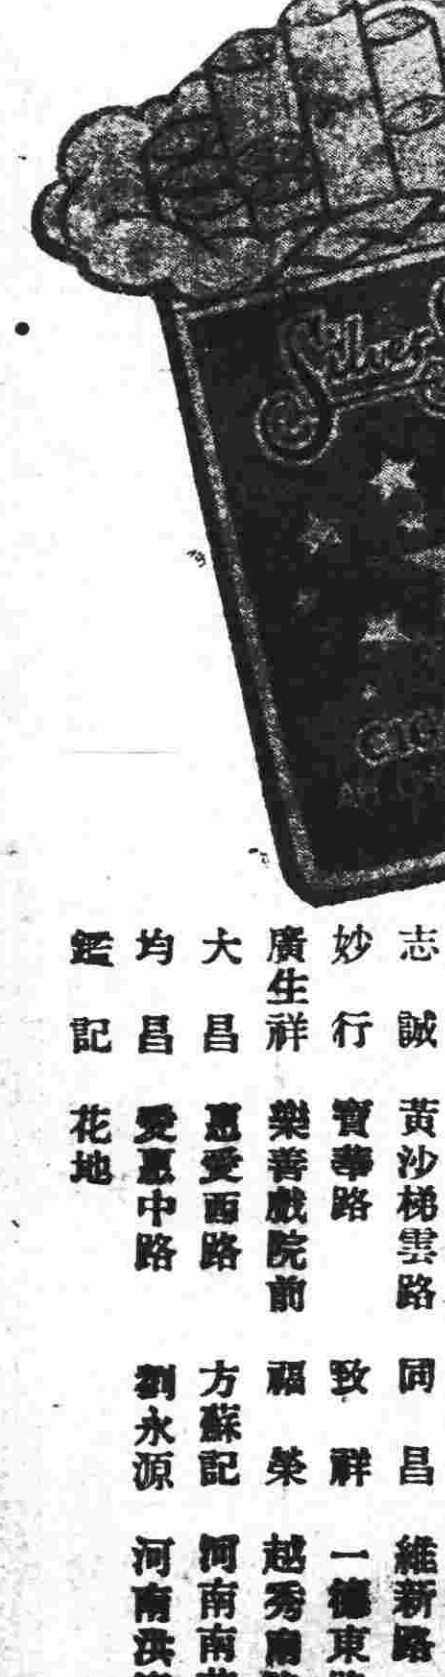 Silver
志誠 黃沙梯雲路 同昌 維新路
妙行 寶華路 致祥 一德東
廣生祥 樂善戲院前 福榮 越秀南
大昌 惠愛西路 方蘇記 河南南
均昌 愛惠中路 劉永源 河南洪
鑑記 花地